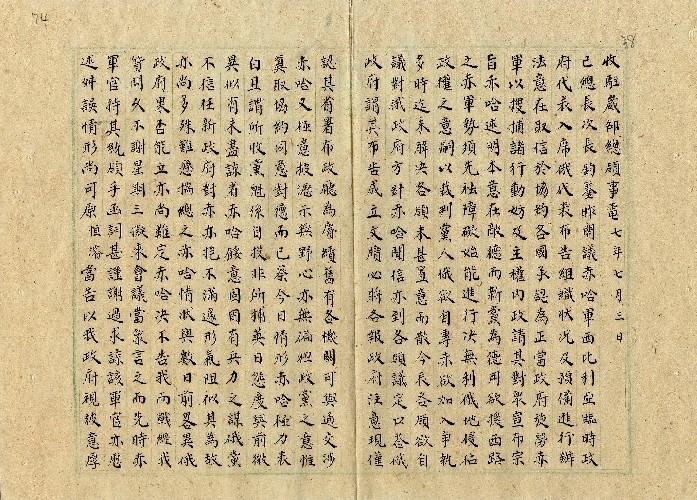 收駐崴邵總領事電 七年七月三日
己總長次長鈞鑒昨開議赤哈軍西比利亞臨時政
府代表入席俄代表布告組織狀況及預備進行辦
法意在取信於協約各國承認為正當政府旋勞赤
軍以搜捕諸行動妨及主權內政請其對眾宣布宗
旨赤哈述明本意在敵德而新黨為德可欲援西路
之赤軍勢須先祛障礙始能進行決無利俄地侵佔
政權之意嗣以我到黨人俄欲自專赤欲加入爭執
多時迄未解決各領未甚置意而散今晨各領欲自
議對俄政府方針赤哈聞信亦到各領議定口答俄
政府謂其布告成立文牘必將各報政府注意現僅
認其省署布政廳為賡續舊有各機關可與通交涉
赤哈又極意披瀝示無野心亦無偏袒政黨之意惟
冀取協約同意對德而已蔡今日情形赤哈極力表
白且謂所收黨魁係自投非所捕英日態度與前微
異似有未盡謀者赤哈餒意固因有兵力之謀俄黨
不信任新政府對赤亦抱不滿邊形氣阻似其為敵
亦尚多殊難懸揣總之赤哈情狀與數日前畧異俄
政府果否能立亦尚難定赤哈決不告我而戰經我
質問久不謝星期三擬來會議當眾言之而先時赤
軍官持其統領手函詞甚謹謝過求諒該軍官亦歷
述歧誤情形尚可原恒審當告以我政府視彼意厚
74
38